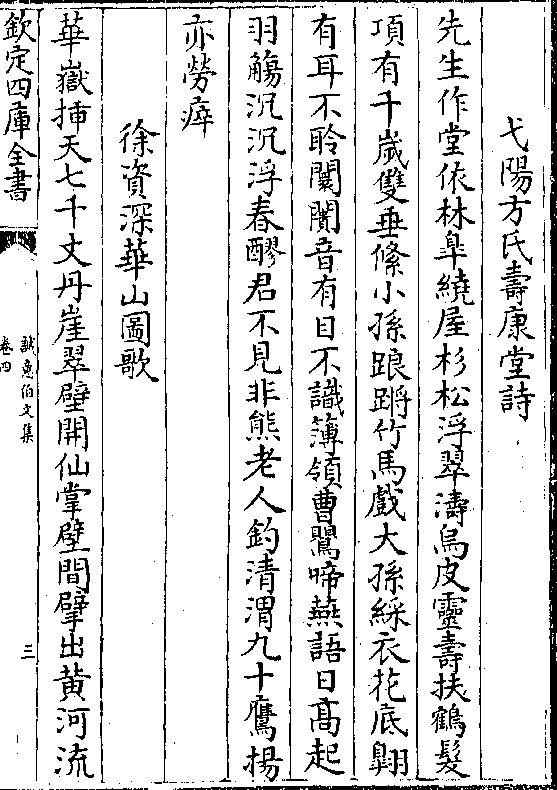 弋陽方氏壽康堂詩
先生作堂依林臯繞屋杉松浮翠濤烏皮靈壽扶鶴髮
項有千歲雙垂絛小孫踉蹡竹馬戲大孫綵衣花底翺
有耳不聆闤闠音有目不識簿領曹鸎啼燕語日髙起
羽觴沉沉浮春醪君不見非熊老人釣清渭九十鷹揚
亦勞瘁
徐資深華山圖歌
華嶽揷天七千丈丹崖翠壁開仙掌壁間擘出黄河流
欽定四庫全書
誠意伯文集
卷四
三